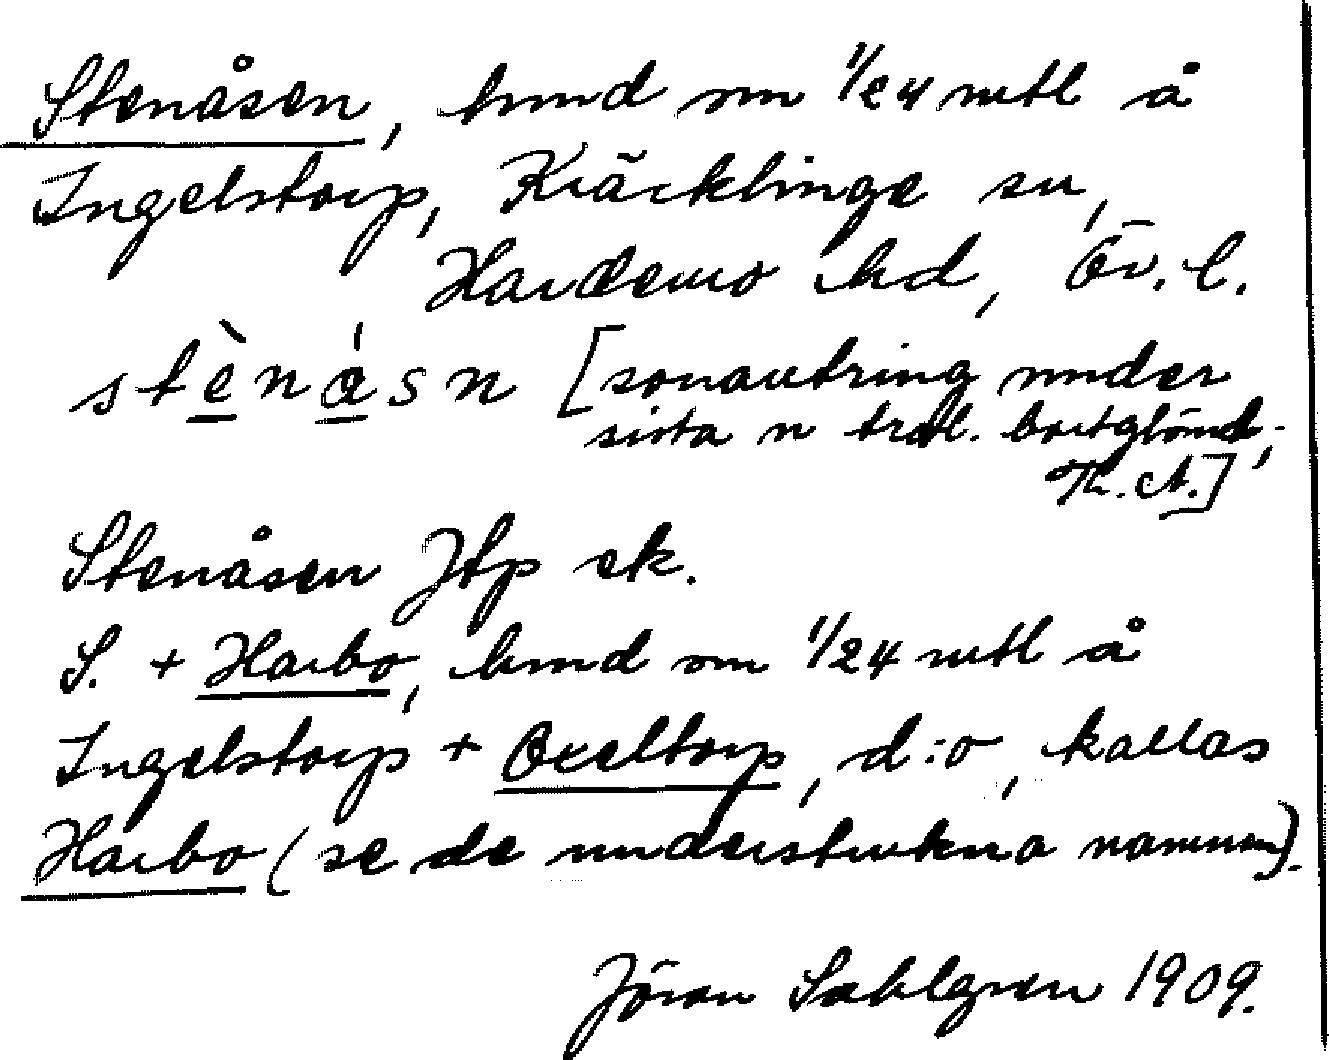 Stenåsen, hmd om 1/24 mtl å
Ingelstorp, Kräcklinge sn,
Hardemo hd, Ör. l.
stènásn [sonantring under
sista n trol. bortglömd;
Th. A.]
Stenåsen Jtp ek.
S. + Harbo, hmd om 1/24 mtl å
Ingelstorp + Oxeltorp, d:o, kallas
Harbo (se de understrukna namnen).
Jöran Sahlgren 1909.